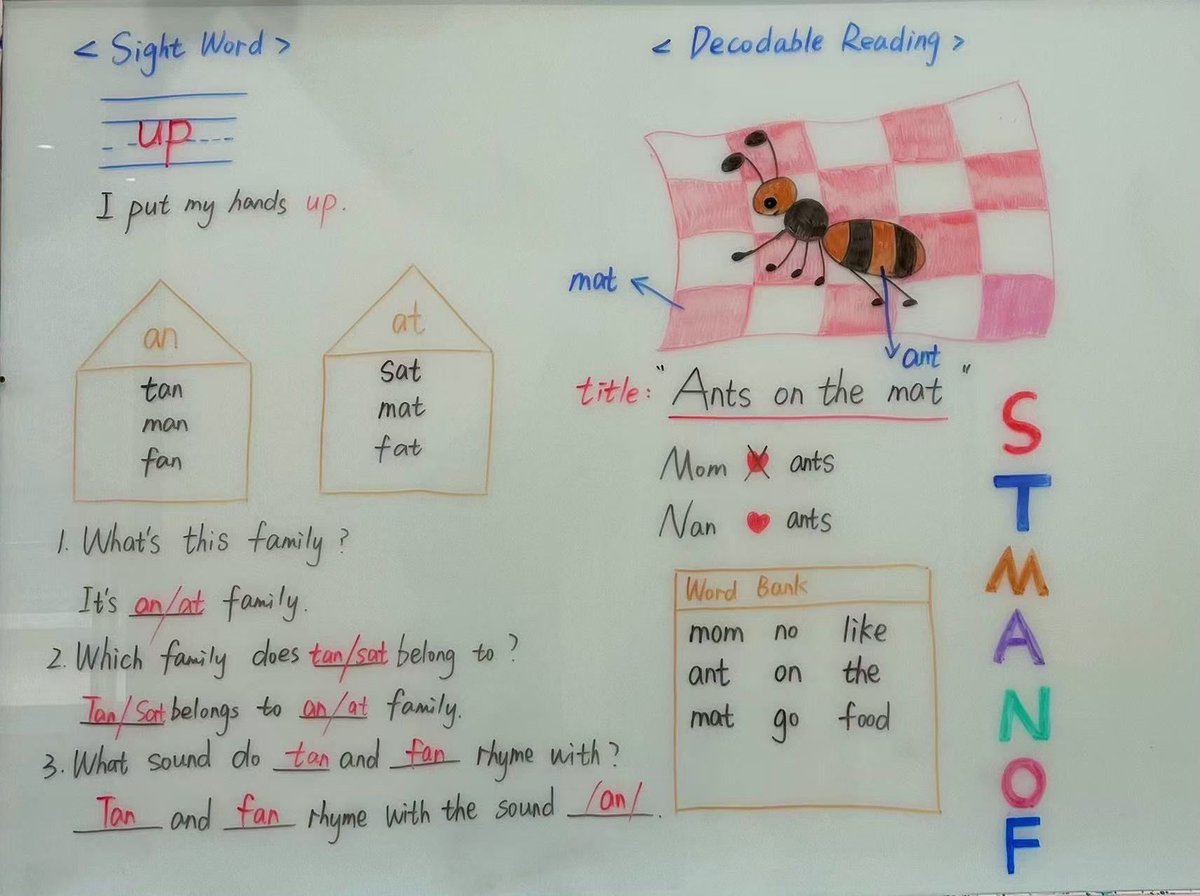 < Sight Word >
up
I put my hands up.
an
tan
man
fan
at
sat
mat
fat
1. What's this family?
It's an/at family.
2. Which family does tan/sat belong to?
Tan/Sat belongs to an/at family.
3. What sound do tan and fan rhyme with?
Tan and fan rhyme with the sound /an/.
< Decodable Reading >
mat
ant
title: "Ants on the mat"
Mom ants
Nan ants
Word Bank
mom no like
ant on the
mat go food
S
T
M
A
N
O
F